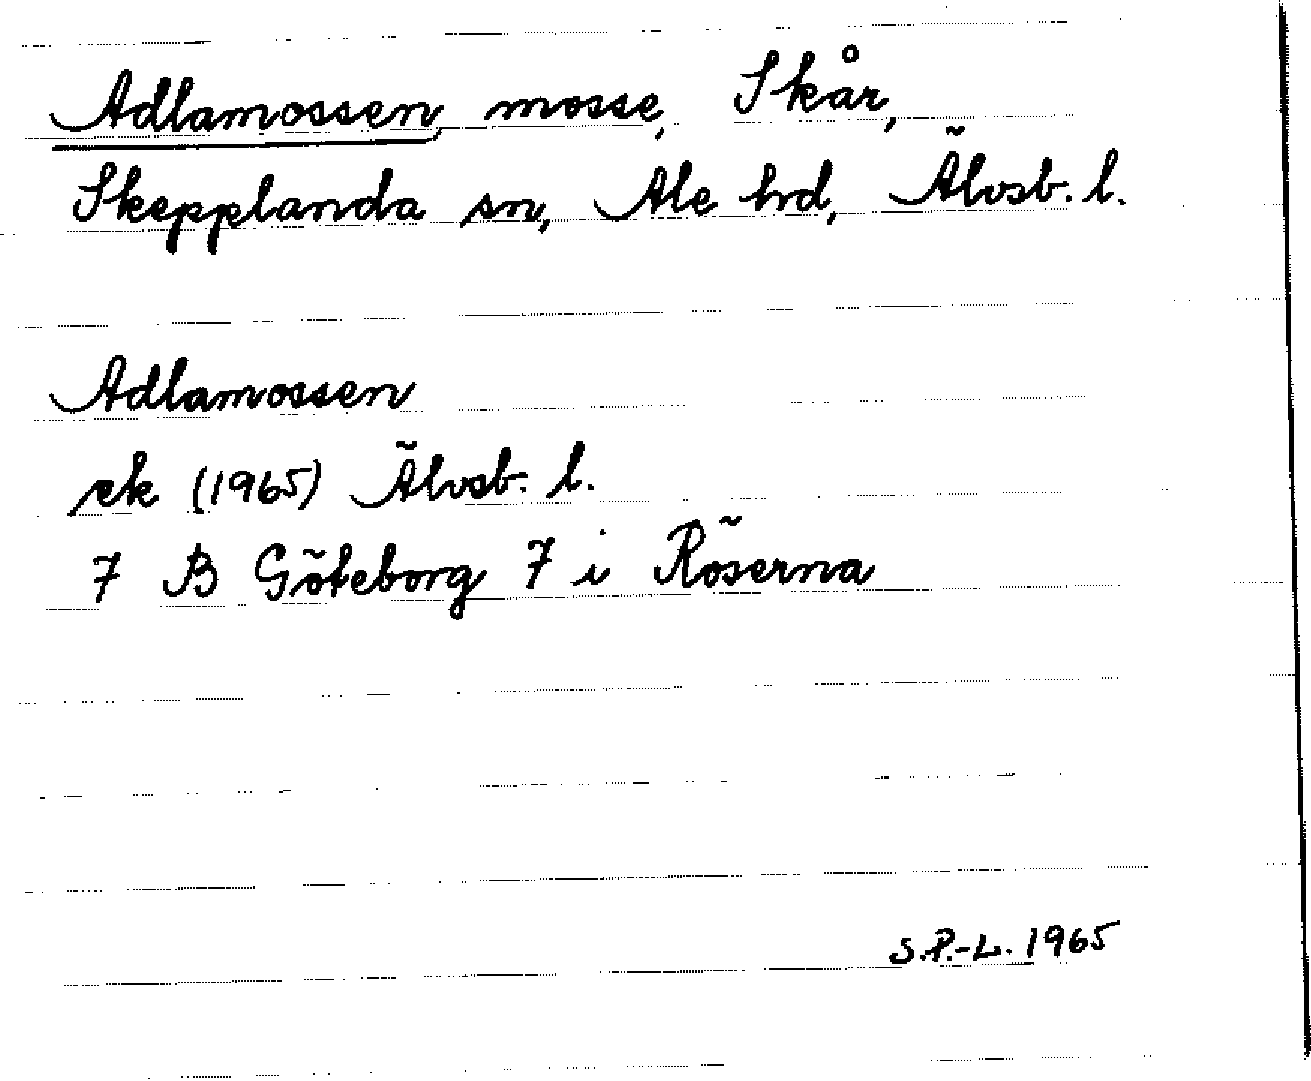 Adlamossen, mosse, Skår,
Skepplanda sn, Ale hrd, Älvsb. l.
Adlamossen
ek (1965) Älvsb. l.
7 B Göteborg 7 i Röserna
S.P.-L. 1965